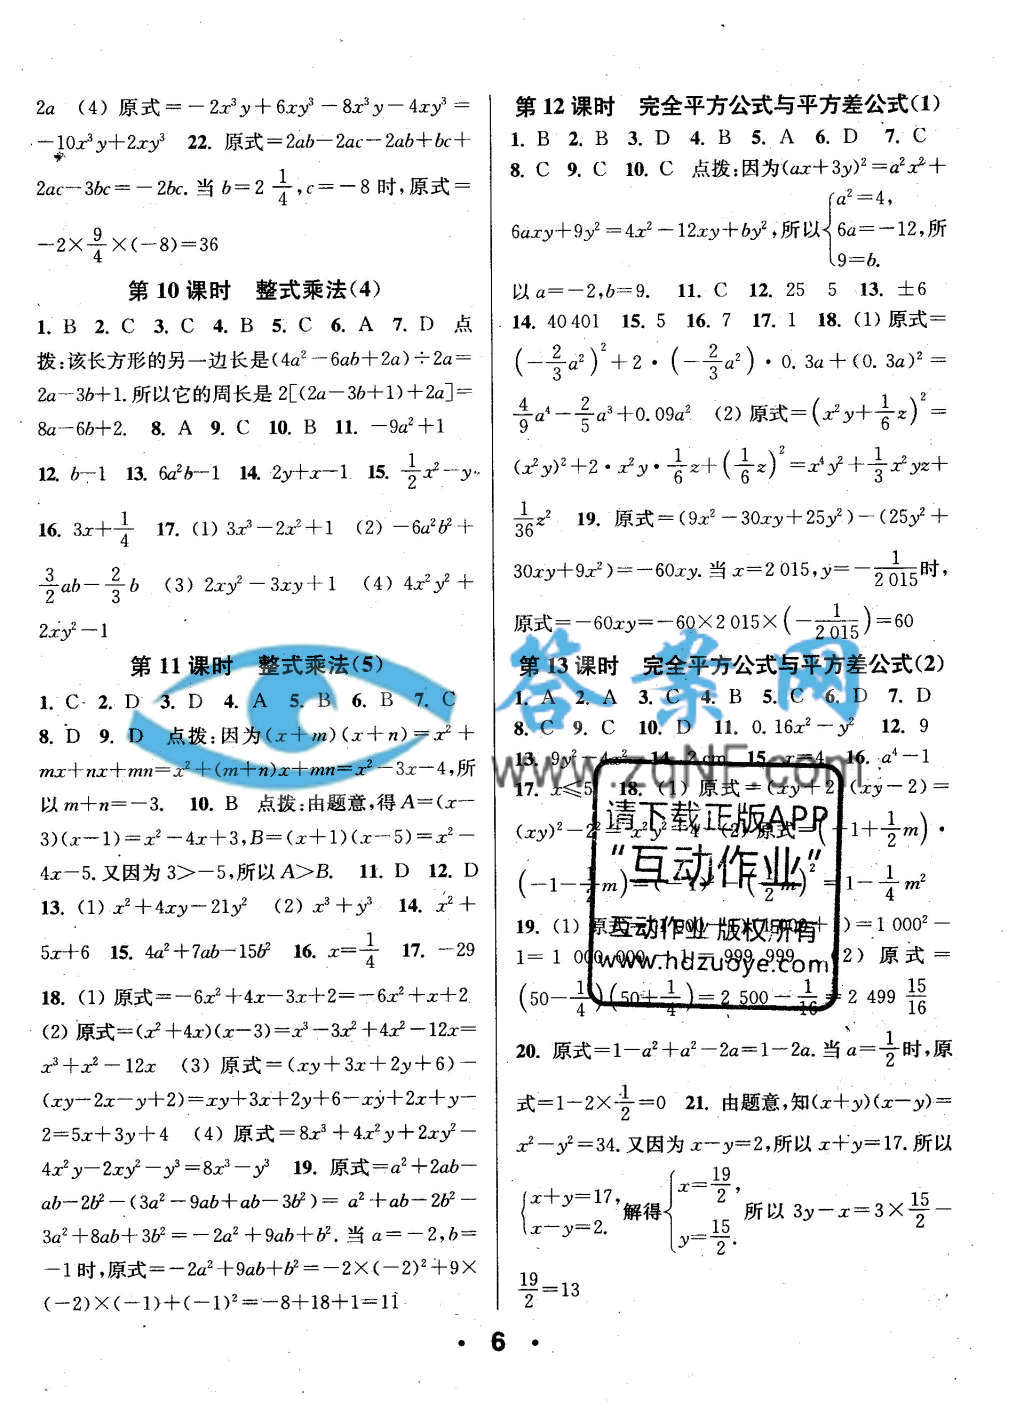 2a (4) 原式=-2x³y+6xy³-8x³y-4xy³=
-10x³y+2xy³ 22. 原式=2ab-2ac-2ab+bc+
2ac-3bc=-2bc. 当 b=2 1/4, c=-8 时, 原式=
-2×9/4×(-8)=36
第 10 课时 整式乘法(4)
1. B 2. C 3. C 4. B 5. C 6. A 7. D 点
拨:该长方形的另一边长是(4a²-6ab+2a)÷2a=
2a-3b+1. 所以它的周长是 2[(2a-3b+1)+2a]=
8a-6b+2. 8. A 9. C 10. B 11. -9a²+1
12. b-1 13. 6a²b-1 14. 2y+x-1 15. 1/2x²-y
16. 3x+1/4 17. (1) 3x³-2x²+1 (2) -6a²b²+
3/2ab-2/3b (3) 2xy²-3xy+1 (4) 4x²y²+
2xy²-1
第 11 课时 整式乘法(5)
1. C 2. D 3. D 4. A 5. B 6. B 7. C
8. D 9. D 点拨:因为(x+m)(x+n)=x²+
mx+nx+mn=x²+(m+n)x+mn=x²-3x-4, 所
以 m+n=-3. 10. B 点拨:由题意, 得 A=(x-
3)(x-1)=x²-4x+3, B=(x+1)(x-5)=x²-
4x-5. 又因为 3>-5, 所以 A>B. 11. D 12. D
13. (1) x²+4xy-21y² (2) x³+y³ 14. x²+
5x+6 15. 4a²+7ab-15b² 16. x=1/4 17. -29
18. (1) 原式=-6x²+4x-3x+2=-6x²+x+2
(2) 原式=(x²+4x)(x-3)=x³-3x²+4x²-12x=
x³+x²-12x (3) 原式=(xy+3x+2y+6)-
(xy-2x-y+2)=xy+3x+2y+6-xy+2x+y-
2=5x+3y+4 (4) 原式=8x³+4x²y+2xy²-
4x²y-2xy²-y³=8x³-y³ 19. 原式=a²+2ab-
ab-2b²-(3a²-9ab+ab-3b²)= a²+ab-2b²-
3a²+8ab+3b²=-2a²+9ab+b². 当 a=-2, b=
-1 时, 原式=-2a²+9ab+b²=-2×(-2)²+9×
(-2)×(-1)+(-1)²=-8+18+1=11
第 12 课时 完全平方公式与平方差公式(1)
1. B 2. B 3. D 4. B 5. A 6. D 7. C
8. C 9. C 10. C 点拨:因为(ax+3y)²=a²x²+
6axy+9y²=4x²-12xy+by², 所以{a²=4, 6a=-12, 9=b. 所
以 a=-2, b=9. 11. C 12. 25 5 13. ±6
14. 40 401 15. 5 16. 7 17. 1 18. (1) 原式=
(-2/3a²)²+2·(-2/3a²)·0.3a+(0.3a)²=
4/9a⁴-2/5a³+0.09a² (2) 原式=(x²y+1/6z)²=
(x²y)²+2·x²y·1/6z+(1/6z)²=x⁴y²+1/3x²yz+
1/36z² 19. 原式=(9x²-30xy+25y²)-(25y²+
30xy+9x²)=-60xy. 当 x=2 015, y=-1/2 015时,
原式=-60xy=-60×2 015×(-1/2 015)=60
答案网
第 13 课时 完全平方公式与平方差公式(2)
1. A 2. A 3. C 4. B 5. C 6. D 7. D
8. C 9. C 10. D 11. 0.16x²-y² 12. 9
13. 9y²-4x² 14. 2 cm 15. x=4 16. a⁴-1
17. x≤5 18. (1) 原式=(xy+2)(xy-2)=
(xy)²-2²=x²y²-4 (2) 原式=(-1+1/2m)·
请下载正版APP
"互动作业"
互动作业 版权所有
www.hdzuoye.com
(-1-1/2m)=(-1)²-(1/2m)²=1-1/4m²
19. (1) 原式=(1 000-1)(1 000+1)=1 000²-
1=1 000 000-1=999 999 (2) 原式=
(50-1/4)(50+1/4)=2 500-1/16=2 499 15/16
20. 原式=1-a²+a²-2a=1-2a. 当 a=1/2时, 原
式=1-2×1/2=0 21. 由题意, 知(x+y)(x-y)=
x²-y²=34. 又因为 x-y=2, 所以 x+y=17. 所以
{x+y=17, x-y=2. 解得{x=19/2, y=15/2. 所以 3y-x=3×15/2-
19/2=13
· 6 ·